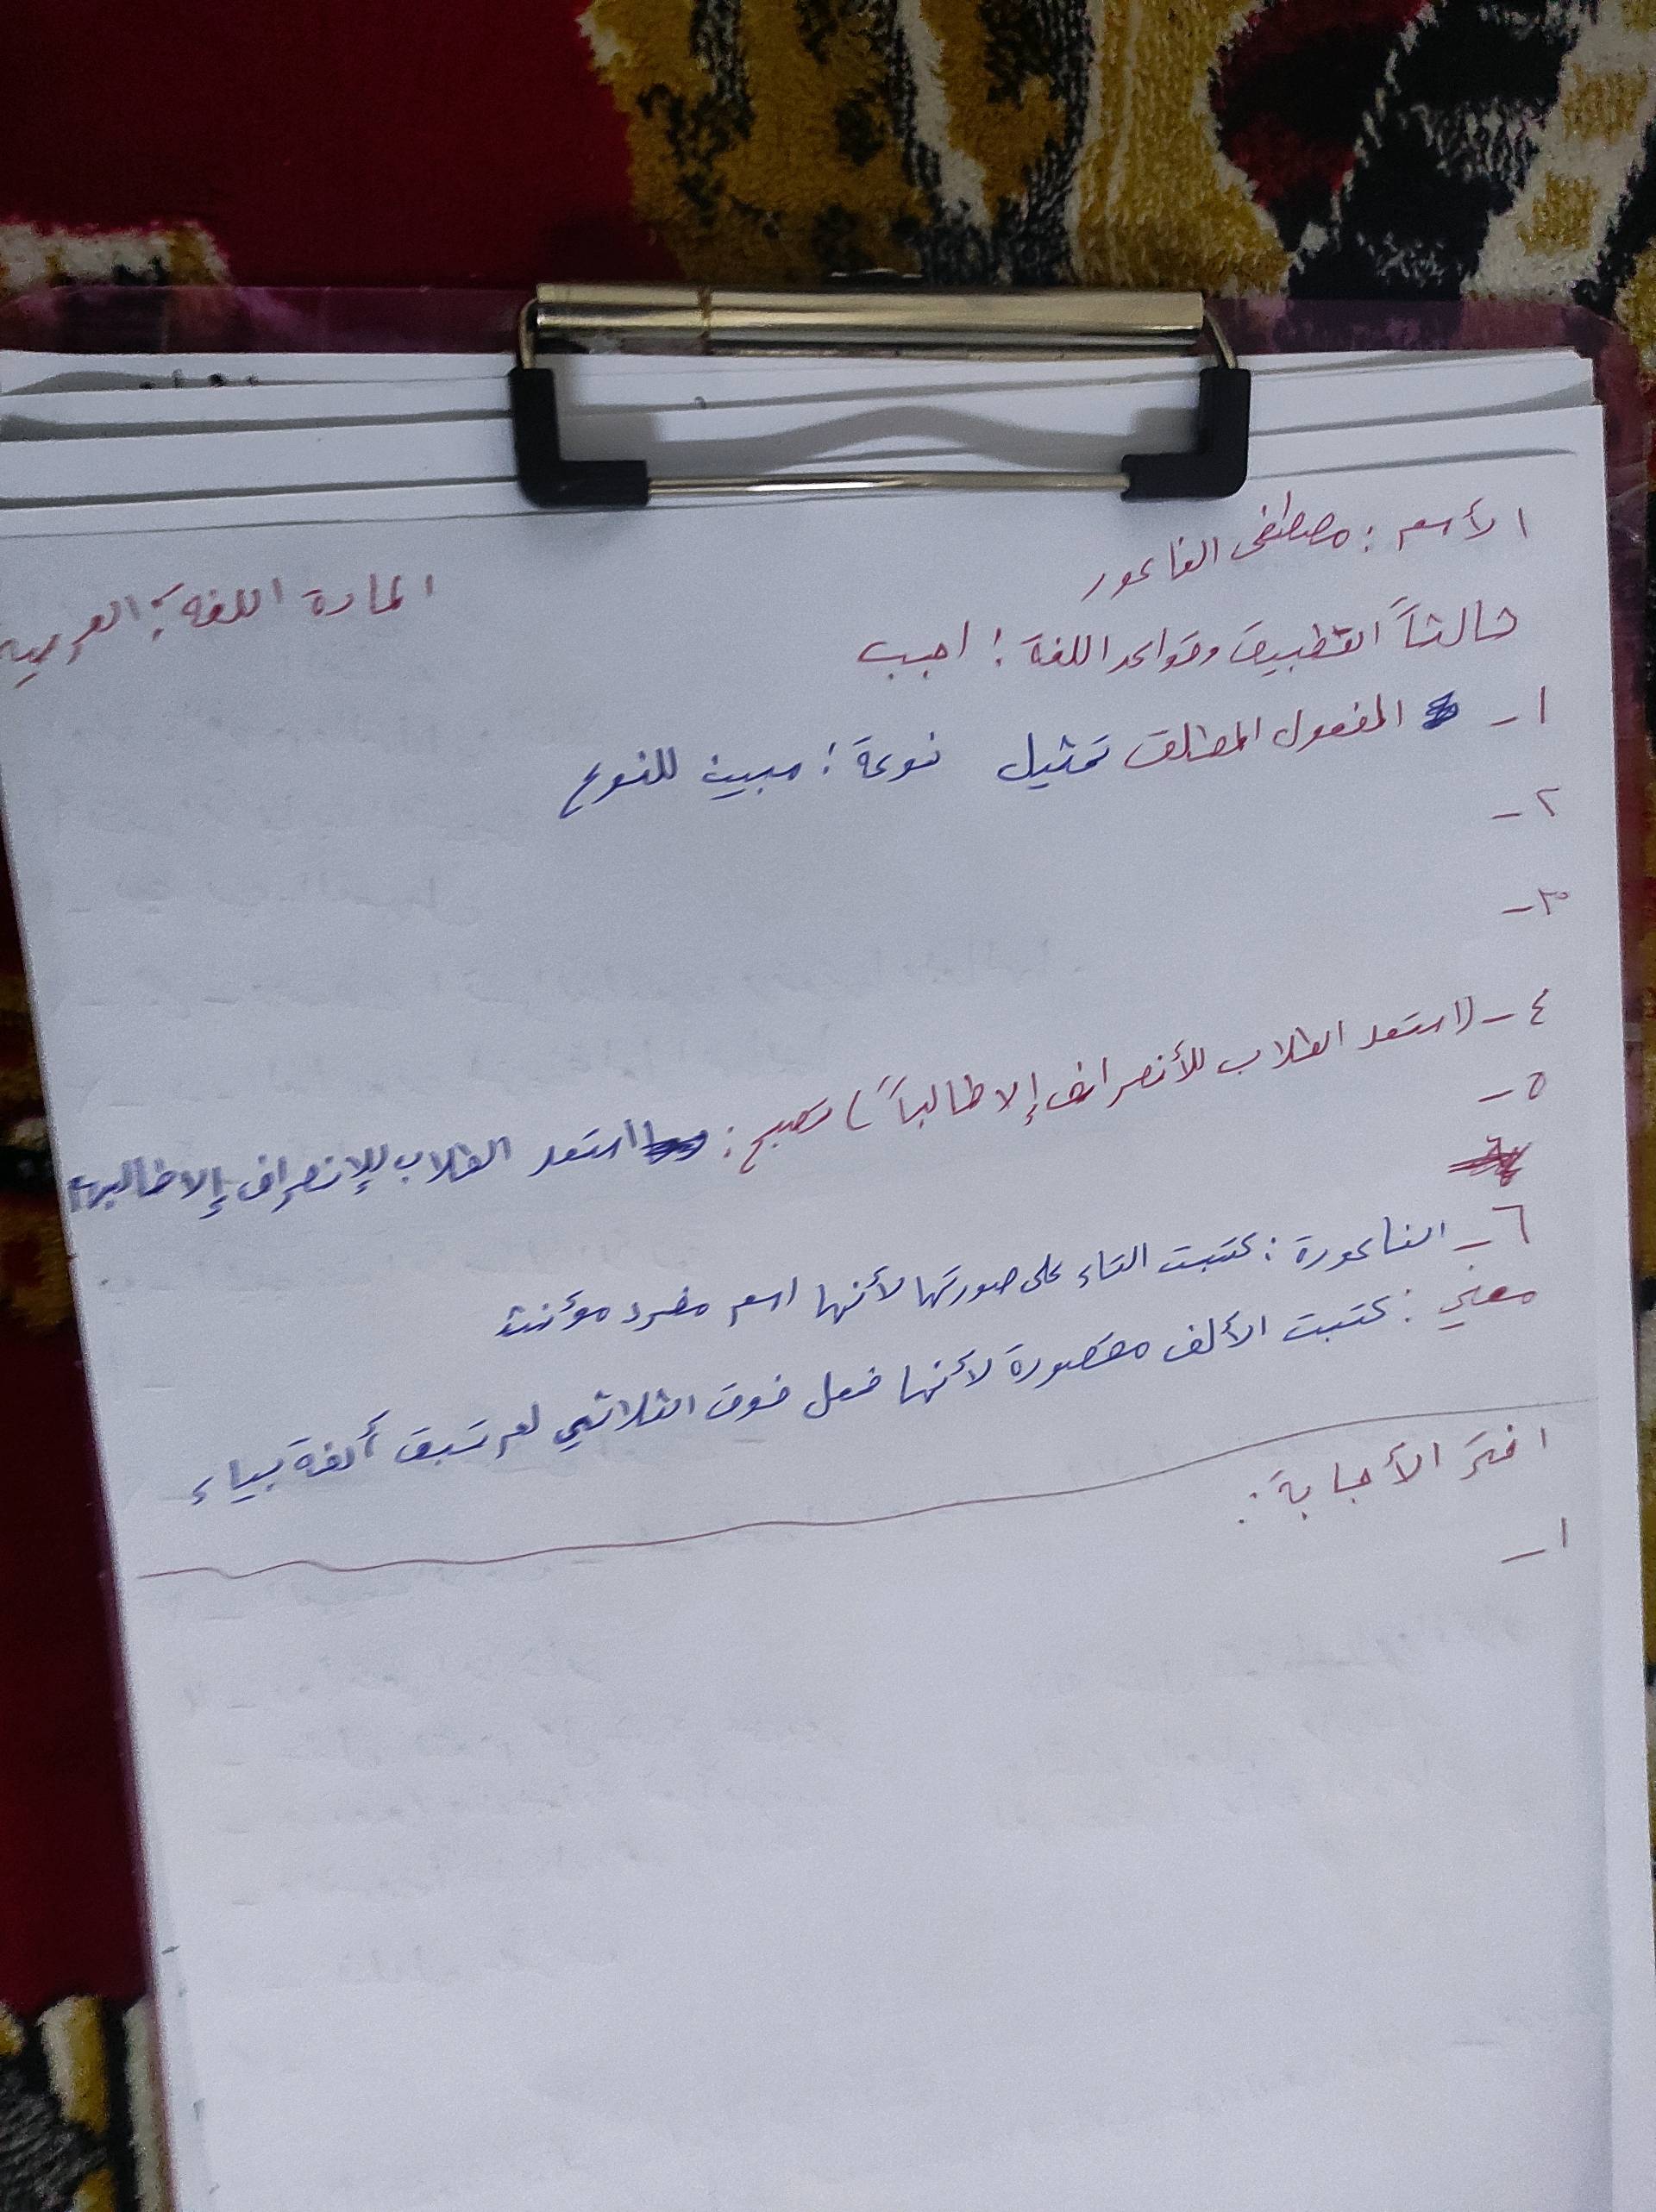 الأسم : مصطفى الفاعور
المادة اللغة العربية
ثالثاً التطبيق وقواعد اللغة : اجب
١- المفعول المطلق تمثيل نوعة : مبين للنوع
٢-
٣-
٤- (استعد الطلاب للأنصراف إلا طالباً) تصبح : استعد الطلاب للإنصراف إلا طالبين
٥-
٦- الناعورة : كتبت التاء على صورتها لأنها اسم مفرد مؤنث
كتبت الألف مقصورة لأنها فعل فوق الثلاثي لم تسبق ألفة بياء
اختر الأجابة :
١-